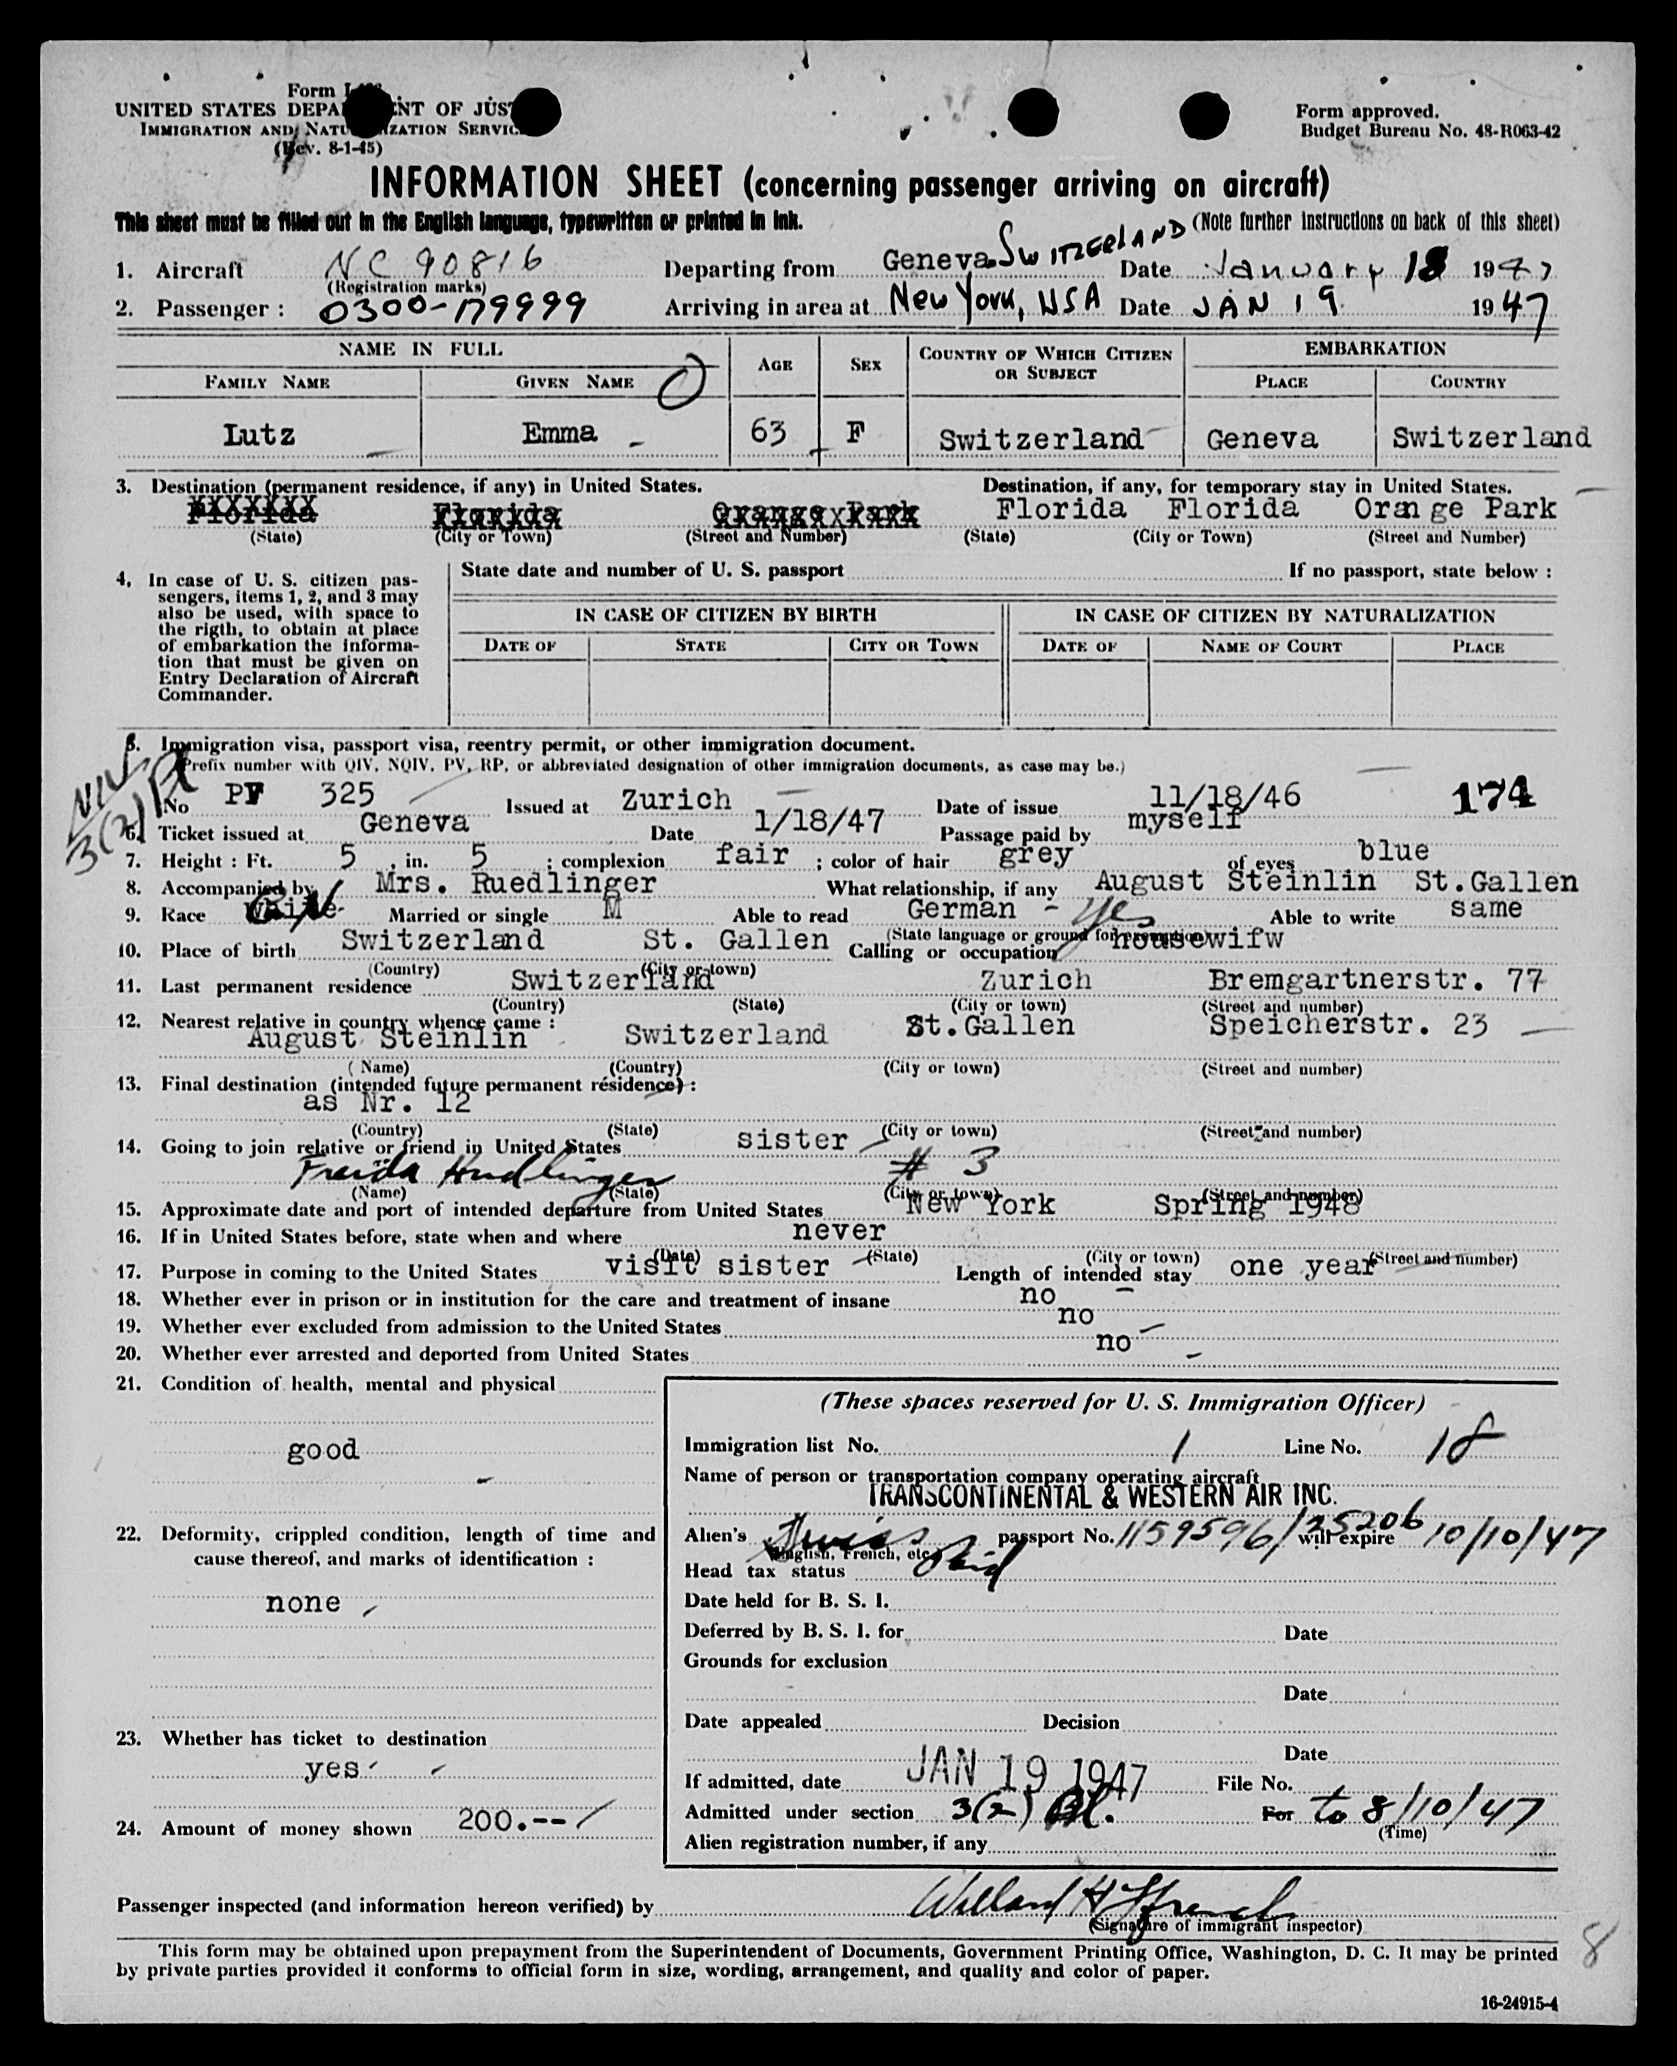 Form I-
UNITED STATES DEPA NT OF JUST
IMMIGRATION AND NATU ZATION SERVIC
(Rev. 8-1-45)
Form approved.
Budget Bureau No. 48-R063-42
INFORMATION SHEET (concerning passenger arriving on aircraft)
This sheet must be filled out in the English language, typewritten or printed in ink.
(Note further instructions on back of this sheet)
1. Aircraft NC 90816 Departing from Geneva. SWITZERLAND Date January 18 1947
(Registration marks)
2. Passenger : 0300-179999 Arriving in area at New York, USA Date JAN 19 1947
NAME IN FULL AGE SEX COUNTRY OF WHICH CITIZEN OR SUBJECT EMBARKATION
FAMILY NAME GIVEN NAME PLACE COUNTRY
Lutz Emma 63 F Switzerland Geneva Switzerland
3. Destination (permanent residence, if any) in United States. Destination, if any, for temporary stay in United States.
Florida Florida Orange Park Florida Florida Orange Park
(State) (City or Town) (Street and Number) (State) (City or Town) (Street and Number)
4. In case of U. S. citizen pas-
sengers, items 1, 2, and 3 may
also be used, with space to
the rigth, to obtain at place
of embarkation the informa-
tion that must be given on
Entry Declaration of Aircraft
Commander.
State date and number of U. S. passport If no passport, state below :
IN CASE OF CITIZEN BY BIRTH IN CASE OF CITIZEN BY NATURALIZATION
DATE OF STATE CITY OR TOWN DATE OF NAME OF COURT PLACE
5. Immigration visa, passport visa, reentry permit, or other immigration document.
(Prefix number with QIV, NQIV, PV, RP, or abbreviated designation of other immigration documents, as case may be.)
3(2)
No PV 325 Issued at Zurich Date of issue 11/18/46 174
6. Ticket issued at Geneva Date 1/18/47 Passage paid by myself
7. Height : Ft. 5 , in. 5 ; complexion fair ; color of hair grey of eyes blue
8. Accompanied by Mrs. Ruedlinger What relationship, if any August Steinlin St.Gallen
9. Race white Married or single M Able to read German - yes Able to write same
(State language or ground for exemption)
10. Place of birth Switzerland St. Gallen Calling or occupation housewifw
(Country) (City or town)
11. Last permanent residence Switzerland Zurich Bremgartnerstr. 77
(Country) (State) (City or town) (Street and number)
12. Nearest relative in country whence came :
August Steinlin Switzerland St.Gallen Speicherstr. 23
( Name) (Country) (City or town) (Street and number)
13. Final destination (intended future permanent residence) :
as Nr. 12
(Country) (State) (City or town) (Street and number)
14. Going to join relative or friend in United States sister
# 3
(Name) (State) (City or town) (Street and number)
15. Approximate date and port of intended departure from United States New York Spring 1948
16. If in United States before, state when and where never
(Date) (State) (City or town) (Street and number)
17. Purpose in coming to the United States visit sister Length of intended stay one year
18. Whether ever in prison or in institution for the care and treatment of insane no
19. Whether ever excluded from admission to the United States no
20. Whether ever arrested and deported from United States no
21. Condition of health, mental and physical
good
22. Deformity, crippled condition, length of time and
cause thereof, and marks of identification :
none
23. Whether has ticket to destination
yes
24. Amount of money shown 200.--
(These spaces reserved for U. S. Immigration Officer)
Immigration list No. 1 Line No. 18
Name of person or transportation company operating aircraft
TRANSCONTINENTAL & WESTERN AIR INC.
Alien's Swiss passport No. 1159596/25206 will expire 10/10/47
(English, French, etc.)
Head tax status Paid
Date held for B. S. I.
Deferred by B. S. I. for Date
Grounds for exclusion
Date
Date appealed Decision
Date
If admitted, date JAN 19 1947 File No.
Admitted under section 3(2) For to 8/10/47
(Time)
Alien registration number, if any
Passenger inspected (and information hereon verified) by Willard H Ffrench
(Signature of immigrant inspector)
This form may be obtained upon prepayment from the Superintendent of Documents, Government Printing Office, Washington, D. C. It may be printed
by private parties provided it conforms to official form in size, wording, arrangement, and quality and color of paper.
8
16-24915-4